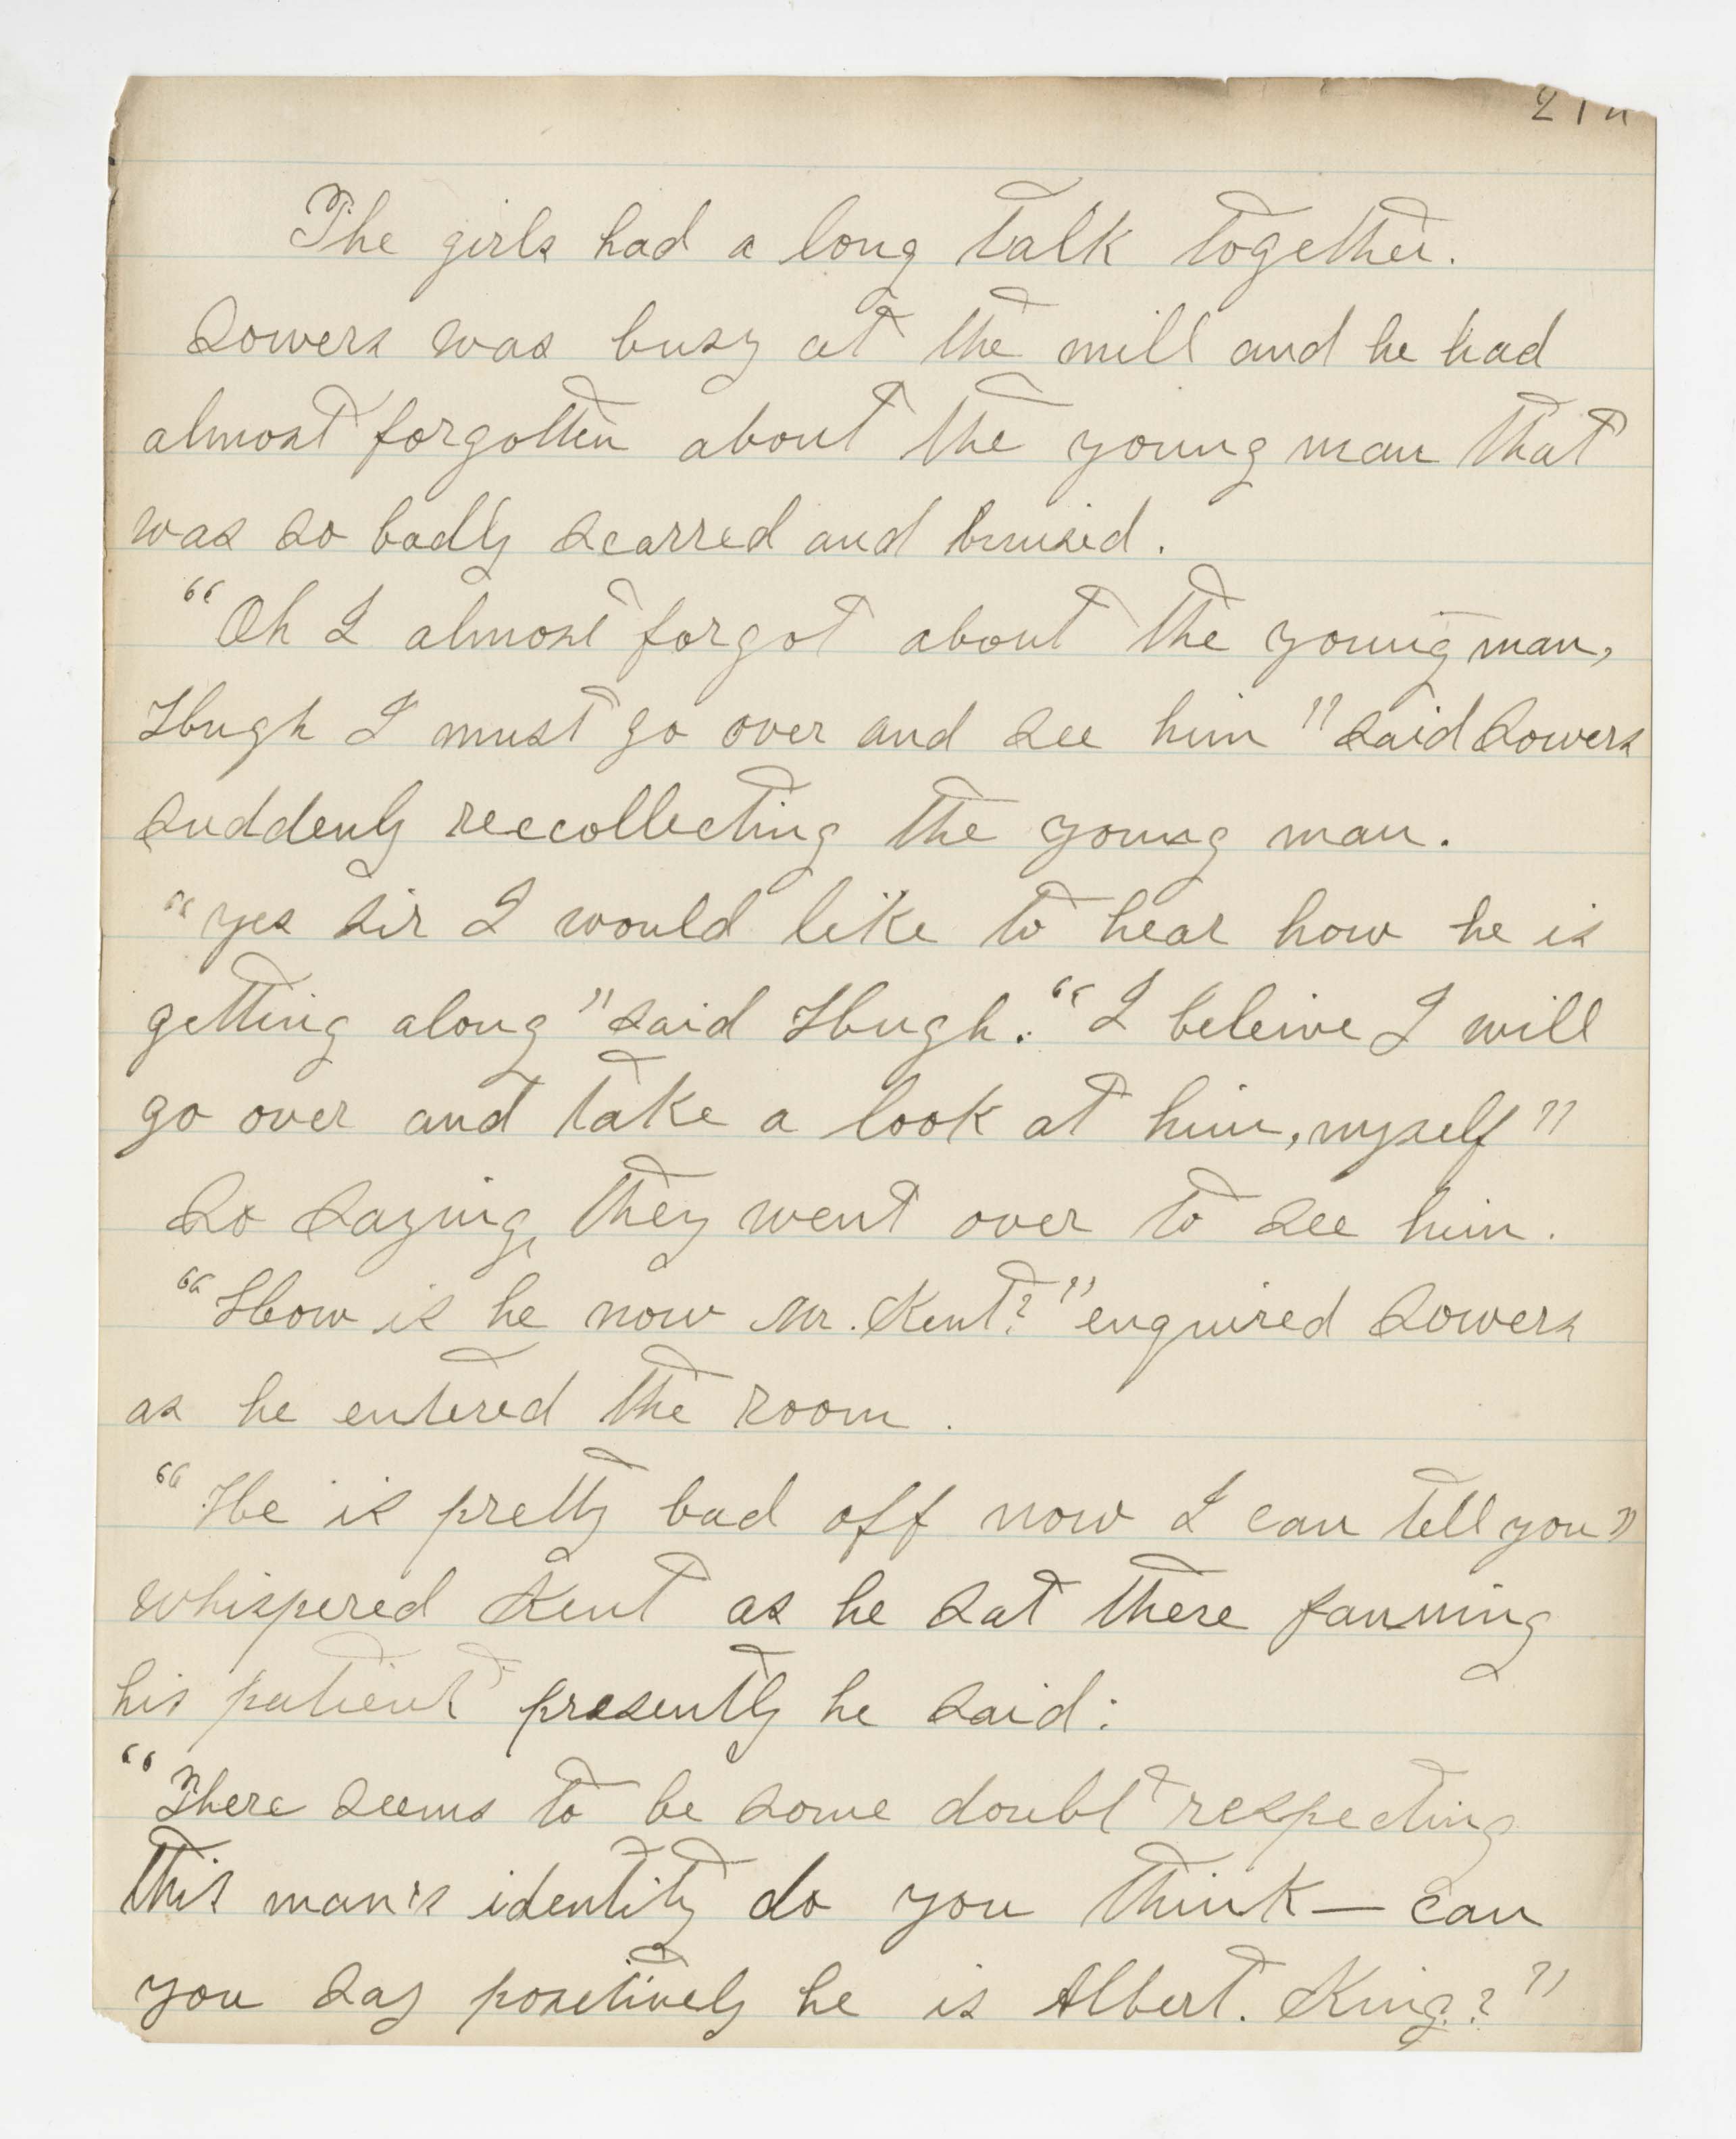 The girls had a long talk together.
Sowers was busy at the mill and he had
almost forgotten about the young man that
was so badly scarred and bruised.
"Oh I almost forgot about the young man,
Hugh I must go over and see him" said Sowers
suddenly reccollecting the young man.
"yes sir I would like to hear how he is
getting along" said Hugh. "I beleive I will
go over and take a look at him, myself"
So saying, they went over to see him.
"How is he now Mr. Kent?" enquired Sowers
as he entered the room.
"He is pretty bad off now I can tell you"
whispered Kent as he sat there fanning
his patient presently he said:
"There seems to be some doubt respecting
this man's identity do you think — can
you say posetively he is Albert. King?"